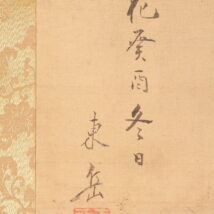 花癸酉冬日
東岳